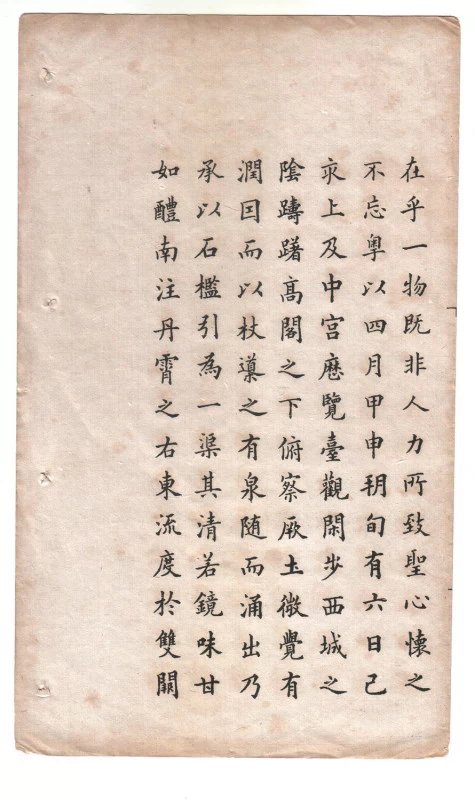 在乎一物既非人力所致聖心懷之
不忘粵以四月甲申朔旬有六日己
亥上及中宮歷覽臺觀閑步西城之
陰躊躇髙閣之下俯察厥圡微覺有
潤因而以杖導之有泉随而涌出乃
承以石檻引為一渠其清若鏡味甘
如醴南注丹霄之右東流度於雙闕